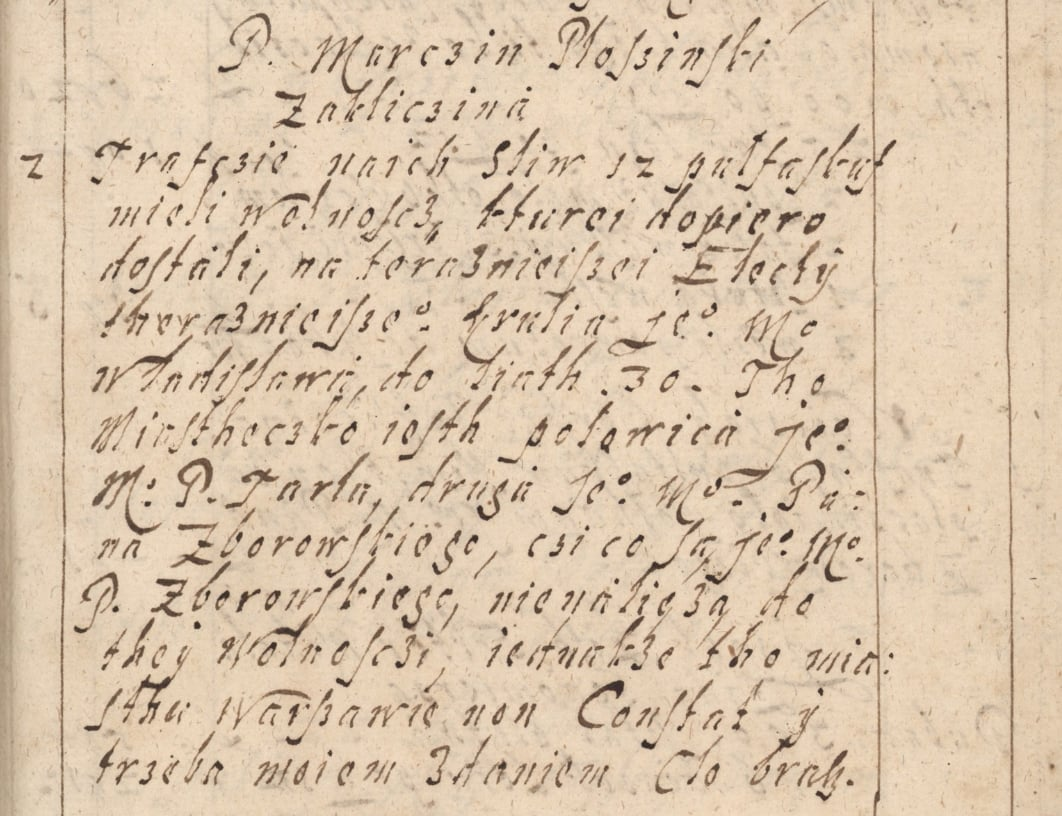 P. Marczin Płoszinski
Zakliczina
2 Trafczie naich Sliw 12 pułtaskuf
mieli wolnoscz, kturei dopiero
dostáli, na teraznieiszei Elecÿ
theraznieisze°. krulia Je°. Mo
władisława, do liath .30. Tho
Miastheczko iesth połowica Je°.
M°. P. Tarła, druga Je°. M°. Pá:
na Zborowskiego, czi co są Je°. M°.
P. Zborowskiego, nienalięzą do
theÿ wolnosczi, iednakze tho mia:
sthu Warszawie non Constat ÿ
trzeba moiem zdaniem Cło bracz.